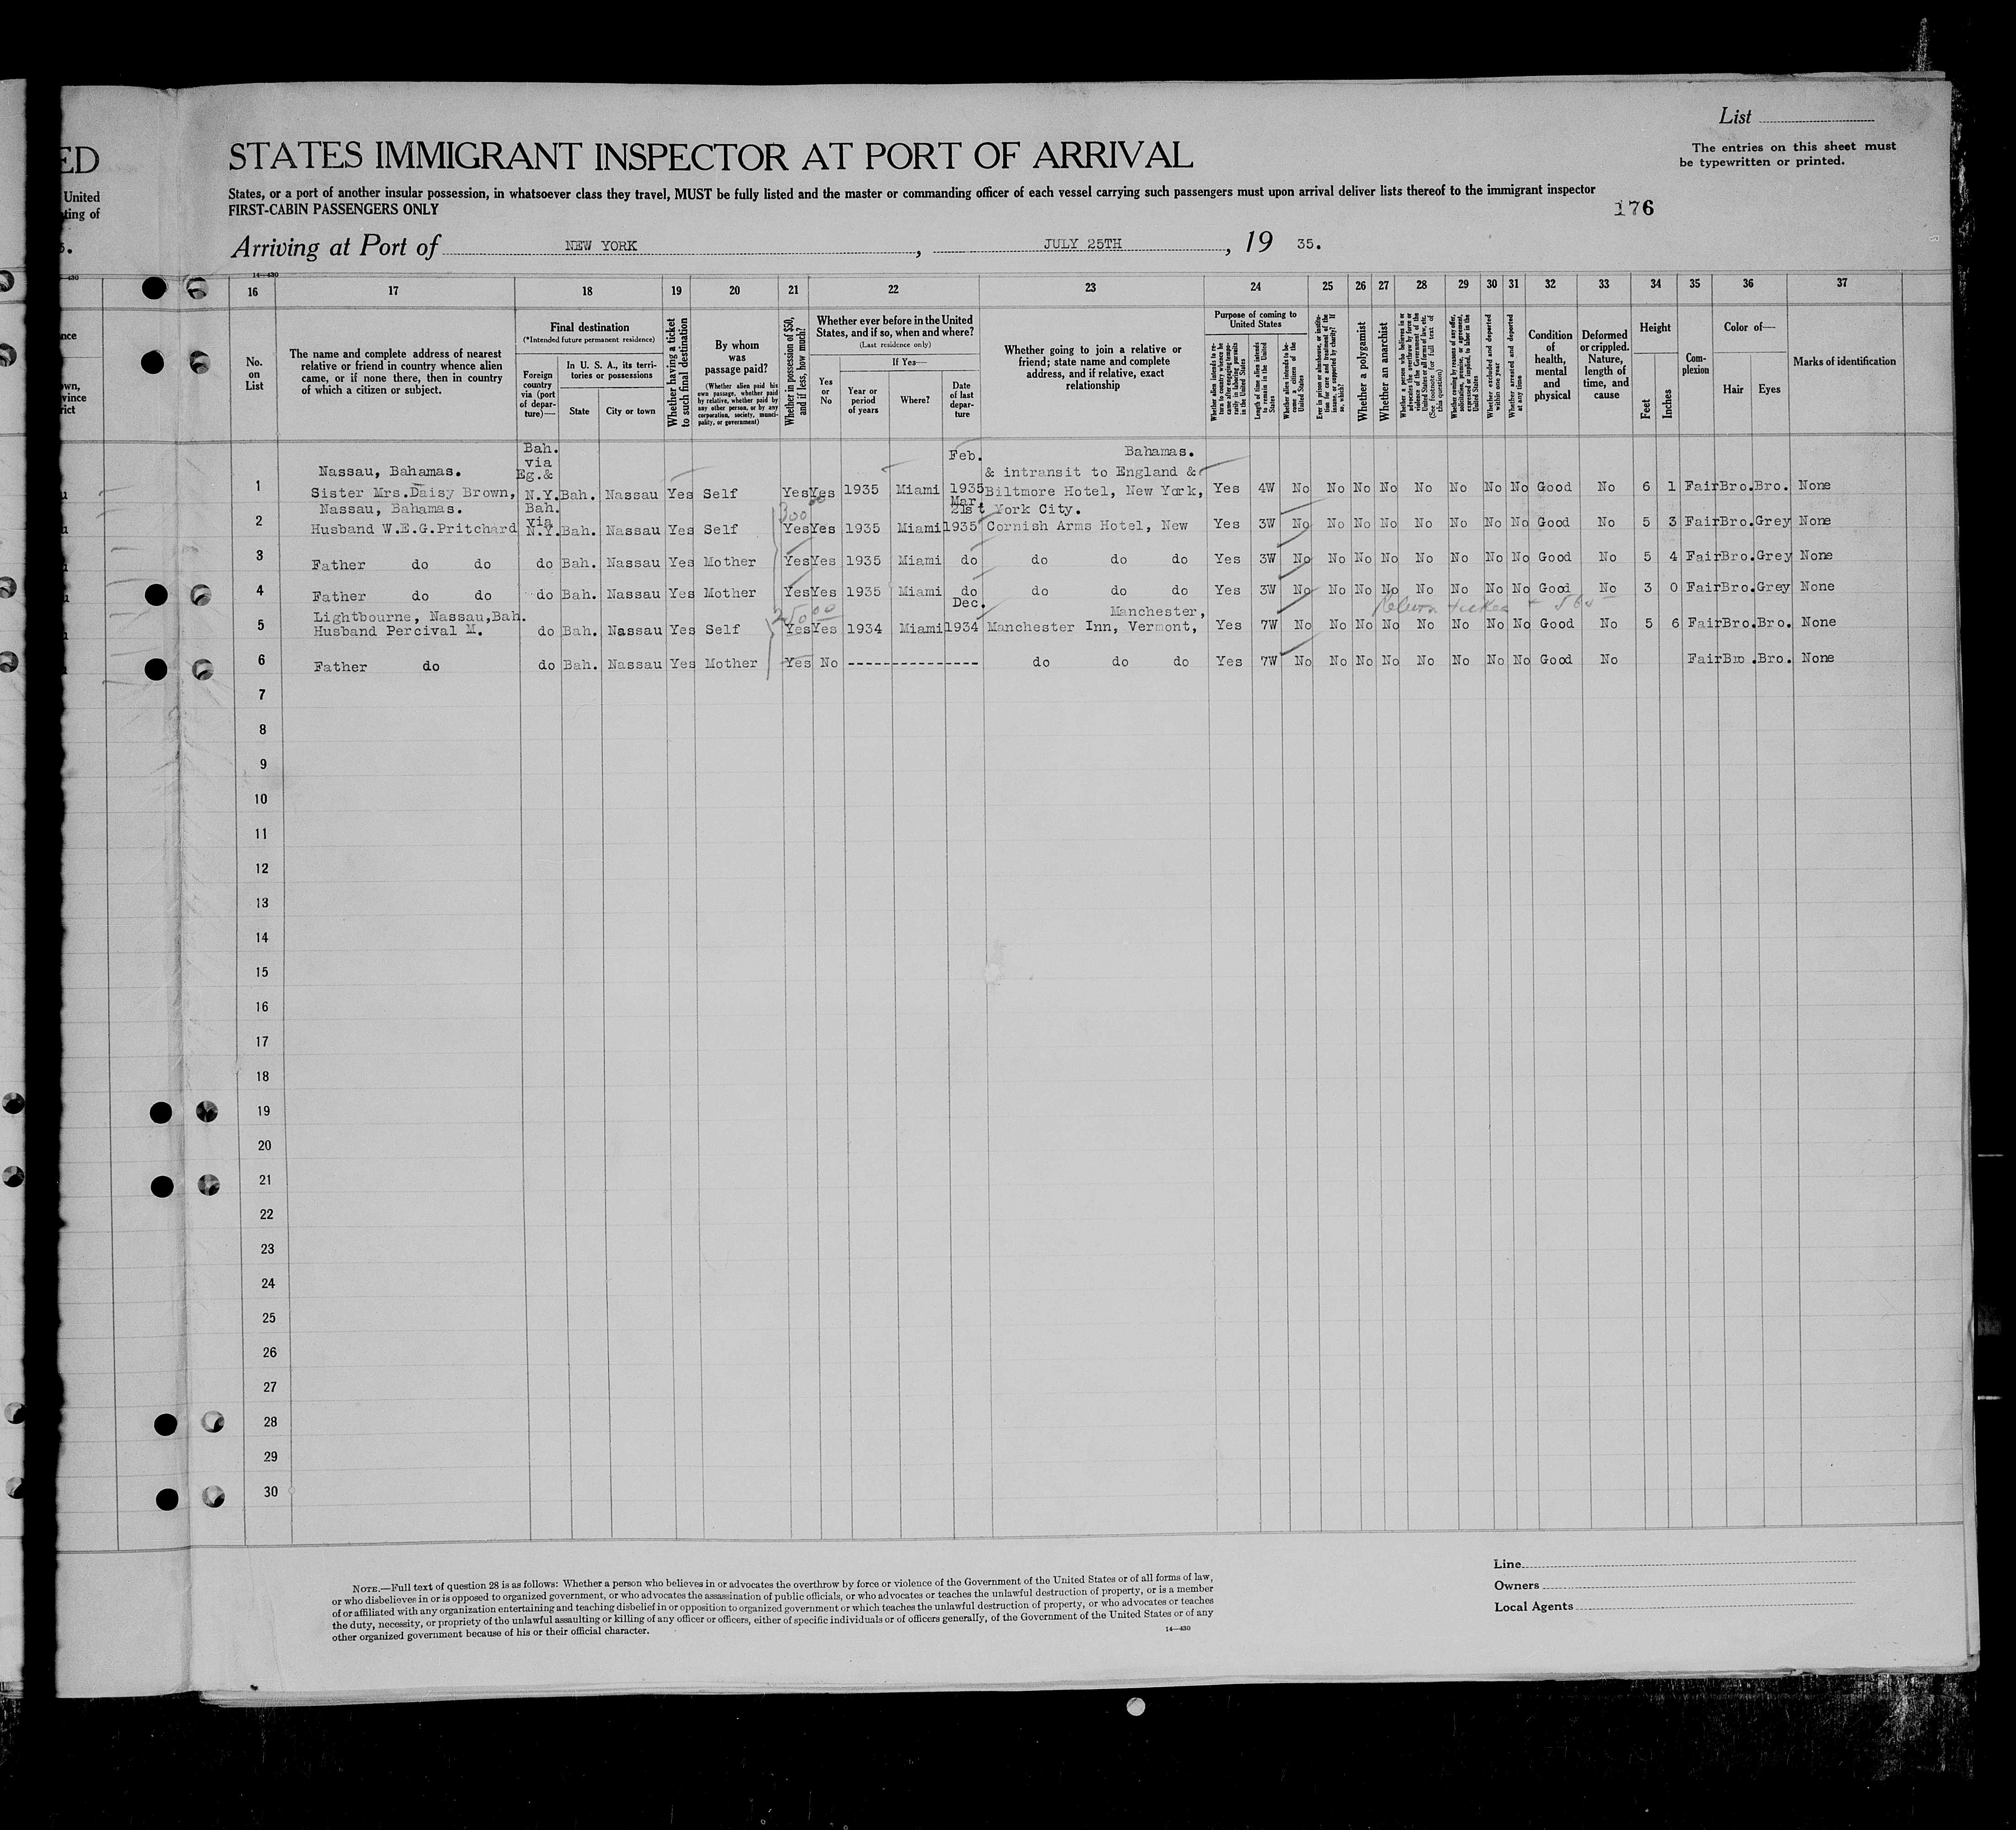 List
ED
STATES IMMIGRANT INSPECTOR AT PORT OF ARRIVAL
The entries on this sheet must
be typewritten or printed.
United
States, or a port of another insular possession, in whatsoever class they travel, MUST be fully listed and the master or commanding officer of each vessel carrying such passengers must upon arrival deliver lists thereof to the immigrant inspector
ting of
FIRST-CABIN PASSENGERS ONLY
176
Arriving at Port of NEW YORK, JULY 25TH, 19 35.
14—430
16 17 18 19 20 21 22 23 24 25 26 27 28 29 30 31 32 33 34 35 36 37
No. on List
The name and complete address of nearest
relative or friend in country whence alien
came, or if none there, then in country
of which a citizen or subject.
Final destination
(*Intended future permanent residence)
Foreign country via (port of depar-ture)—
In U. S. A., its terri-
tories or possessions
State
City or town
Whether having a ticket
to such final destination
By whom
was
passage paid?
(Whether alien paid his
own passage, whether paid
by relative, whether paid by
any other person, or by any
corporation, society, munici-
pality, or government)
Whether in possession of $50,
and if less, how much?
Whether ever before in the United
States, and if so, when and where?
(Last residence only)
Yes or No
If Yes—
Year or period of years
Where?
Date of last depar-ture
Whether going to join a relative or
friend; state name and complete
address, and if relative, exact
relationship
Purpose of coming to
United States
Whether alien intends to re-
turn to country whence he
came after engaging tempo-
rarily in laboring pursuits
in the United States
Length of time alien intends
to remain in the United
States
Whether alien intends to be-
come a citizen of the
United States
Ever in prison or almshouse, or institu-
tion for care and treatment of the
insane, or supported by charity? If
so, which?
Whether a polygamist
Whether an anarchist
Whether a person who believes in or
advocates the overthrow by force or
violence of the Government of the
United States or all forms of law, etc.
(See footnote for full text of
this question)
Whether coming by reasons of any offer,
solicitation, promise, or agreement,
expressed or implied, to labor in the
United States
Whether excluded and deported
within one year
Whether arrested and deported
at any time
Condition
of
health,
mental
and
physical
Deformed
or crippled.
Nature,
length of
time, and
cause
Height
Feet
Inches
Com-
plexion
Color of—
Hair
Eyes
Marks of identification
Nassau, Bahamas. Bah. via Eg.& Feb. Bahamas.
& intransit to England &
1 Sister Mrs.Daisy Brown, N.Y. Bah. Nassau Yes Self Yes Yes 1935 Miami 1935 Biltmore Hotel, New York, Yes 4W No No No No No No No No Good No 6 1 Fair Bro. Bro. None
Nassau, Bahamas. Bah. via 300 Mar. 21st York City.
2 Husband W.E.G.Pritchard N.Y. Bah. Nassau Yes Self Yes Yes 1935 Miami 1935 Cornish Arms Hotel, New Yes 3W No No No No No No No No Good No 5 3 Fair Bro. Grey None
3 Father do do do Bah. Nassau Yes Mother Yes Yes 1935 Miami do do do do Yes 3W No No No No No No No No Good No 5 4 Fair Bro. Grey None
4 Father do do do Bah. Nassau Yes Mother Yes Yes 1935 Miami do do do do Yes 3W No No No No No No No No Good No 3 0 Fair Bro. Grey None
Lightbourne, Nassau,Bah. Dec. Manchester,
5 Husband Percival M. do Bah. Nassau Yes Self Yes Yes 1934 Miami 1934 Manchester Inn, Vermont, Yes 7W No No No No No No No No Good No 5 6 Fair Bro. Bro. None
6 Father do do Bah. Nassau Yes Mother Yes No -------------- do do do Yes 7W No No No No No No No No Good No Fair Bro. Bro. None
7
8
9
10
11
12
13
14
15
16
17
18
19
20
21
22
23
24
25
26
27
28
29
30
NOTE.—Full text of question 28 is as follows: Whether a person who believes in or advocates the overthrow by force or violence of the Government of the United States or of all forms of law,
or who disbelieves in or is opposed to organized government, or who advocates the assassination of public officials, or who advocates or teaches the unlawful destruction of property, or is a member
of or affiliated with any organization entertaining and teaching disbelief in or opposition to organized government or which teaches the unlawful destruction of property, or who advocates or teaches
the duty, necessity, or propriety of the unlawful assaulting or killing of any officer or officers, either of specific individuals or of officers generally, of the Government of the United States or of any
other organized government because of his or their official character.
14—430
Line
Owners
Local Agents